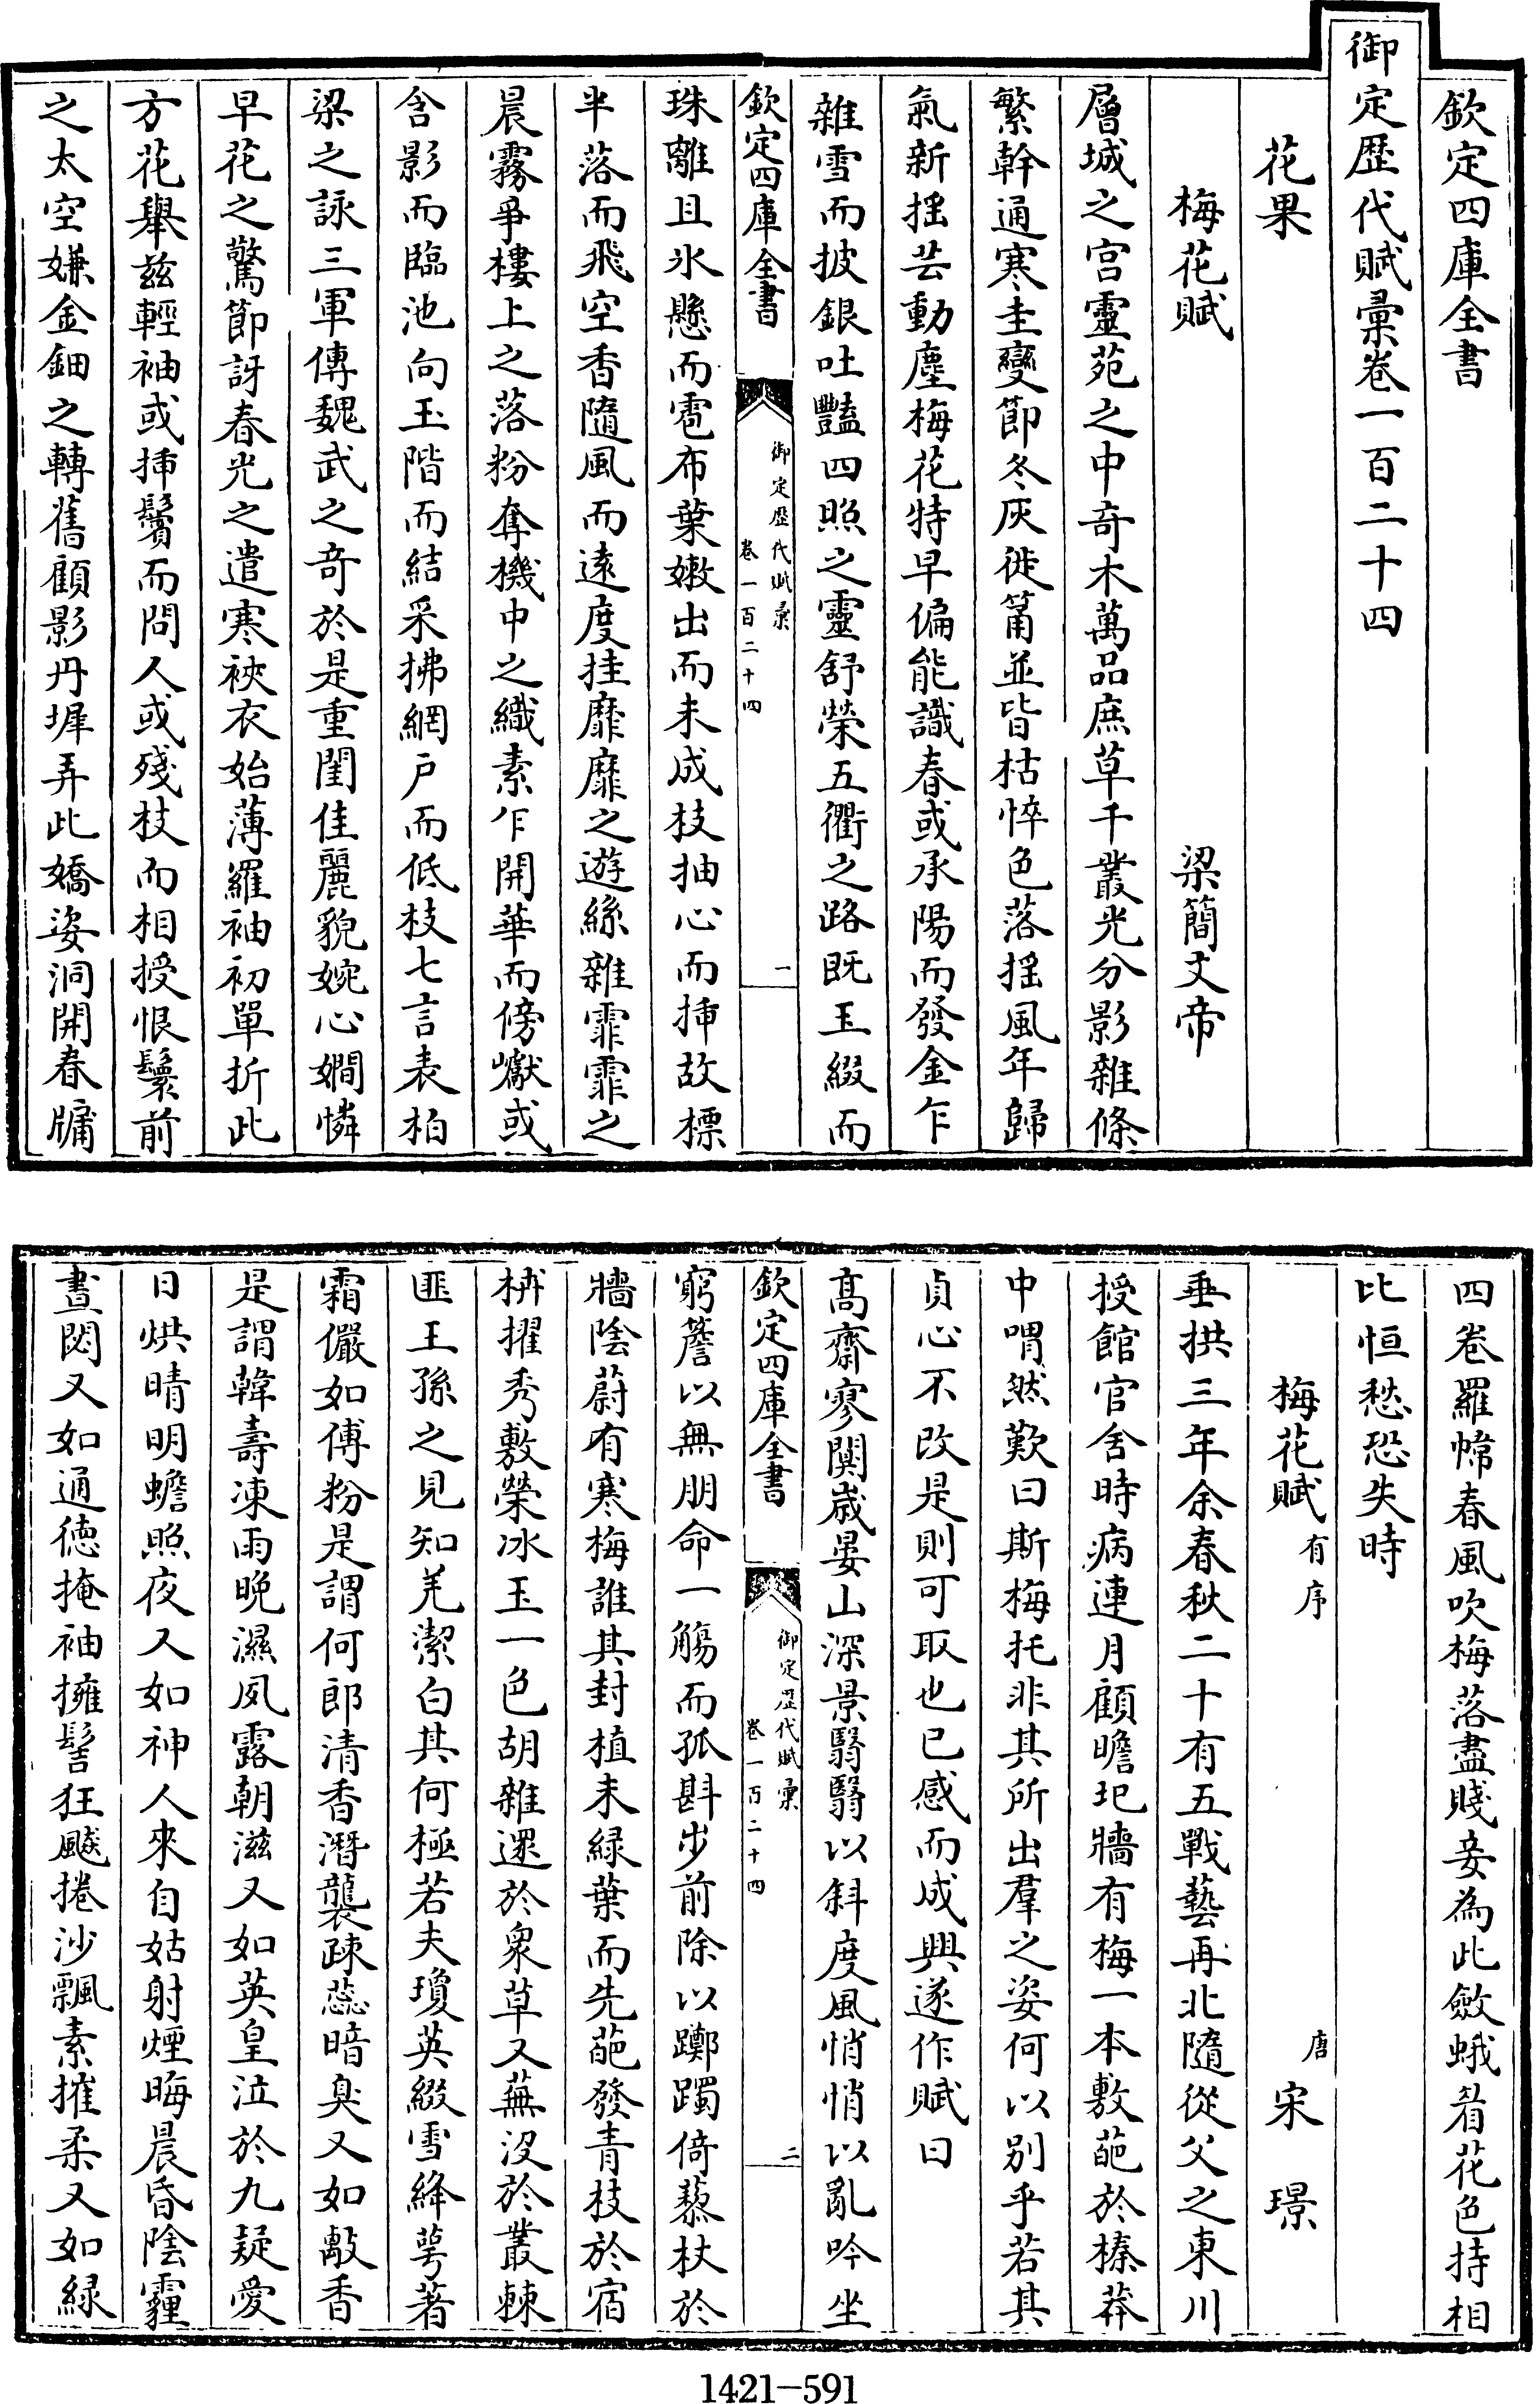 欽定四庫全書
御定歴代賦彙卷一百二十四
花果
梅花賦　梁簡文帝
層城之宫靈苑之中竒木萬品庶草千叢光分影雜條
繁幹通寒圭變節冬灰徙筩並皆枯悴色落揺風年歸
氣新揺芸動塵梅花特早偏能識春或承陽而發金乍
雜雪而披銀吐豔四照之靈舒榮五衢之路既玉綴而
欽定四庫全書
御定歴代賦彙
卷一百二十四
一
珠離且氷懸而雹布葉嫩出而未成枝抽心而揷故標
半落而飛空香隨風而逺度挂靡靡之遊絲雜霏霏之
晨霧爭樓上之落粉奪機中之織素乍開華而傍巘或
含影而臨池向玉階而結采拂網户而低枝七言表柏
梁之詠三軍傳魏武之竒於是重閨佳麗貌婉心嫺憐
早花之驚節訝春光之遣寒裌衣始薄羅袖初單折此
方花舉兹輕袖或揷鬢而問人或殘枝而相授恨鬟前
之太空嫌金鈿之轉舊顧影丹墀弄此嬌姿洞開春牖
四卷羅幃春風吹梅落盡賤妾為此斂蛾眉花色持相
比恒愁恐失時
梅花賦有序　唐宋璟
垂拱三年余春秋二十有五戰藝再北隨從父之東川
授館官舍時病連月顧瞻圮牆有梅一本敷葩於榛莽
中喟然歎曰斯梅托非其所出羣之姿何以别乎若其
貞心不改是則可取也已感而成興遂作賦曰
髙齋寥闃歳晏山深景翳翳以斜度風悄悄以亂吟坐
欽定四庫全書
御定歴代賦彙
卷一百二十四
二
窮簷以無朋命一觴而孤斟步前除以躑躅倚藜杖於
牆陰蔚有寒梅誰其封植未緑葉而先葩發青枝於宿
枿擢秀敷榮冰玉一色胡雜遝於衆草又蕪沒於叢棘
匪王孫之見知羌潔白其何極若夫瓊英綴雪絳萼著
霜儼如傅粉是謂何郎清香潛襲疎蕊暗臭又如敵香
是謂韓壽凍雨晚濕夙露朝滋又如英皇泣於九疑愛
日烘晴明蟾照夜又如神人來自姑射煙晦晨昏陰霾
晝閟又如通徳掩袖擁髻狂飈捲沙飄素摧柔又如緑
1421-591